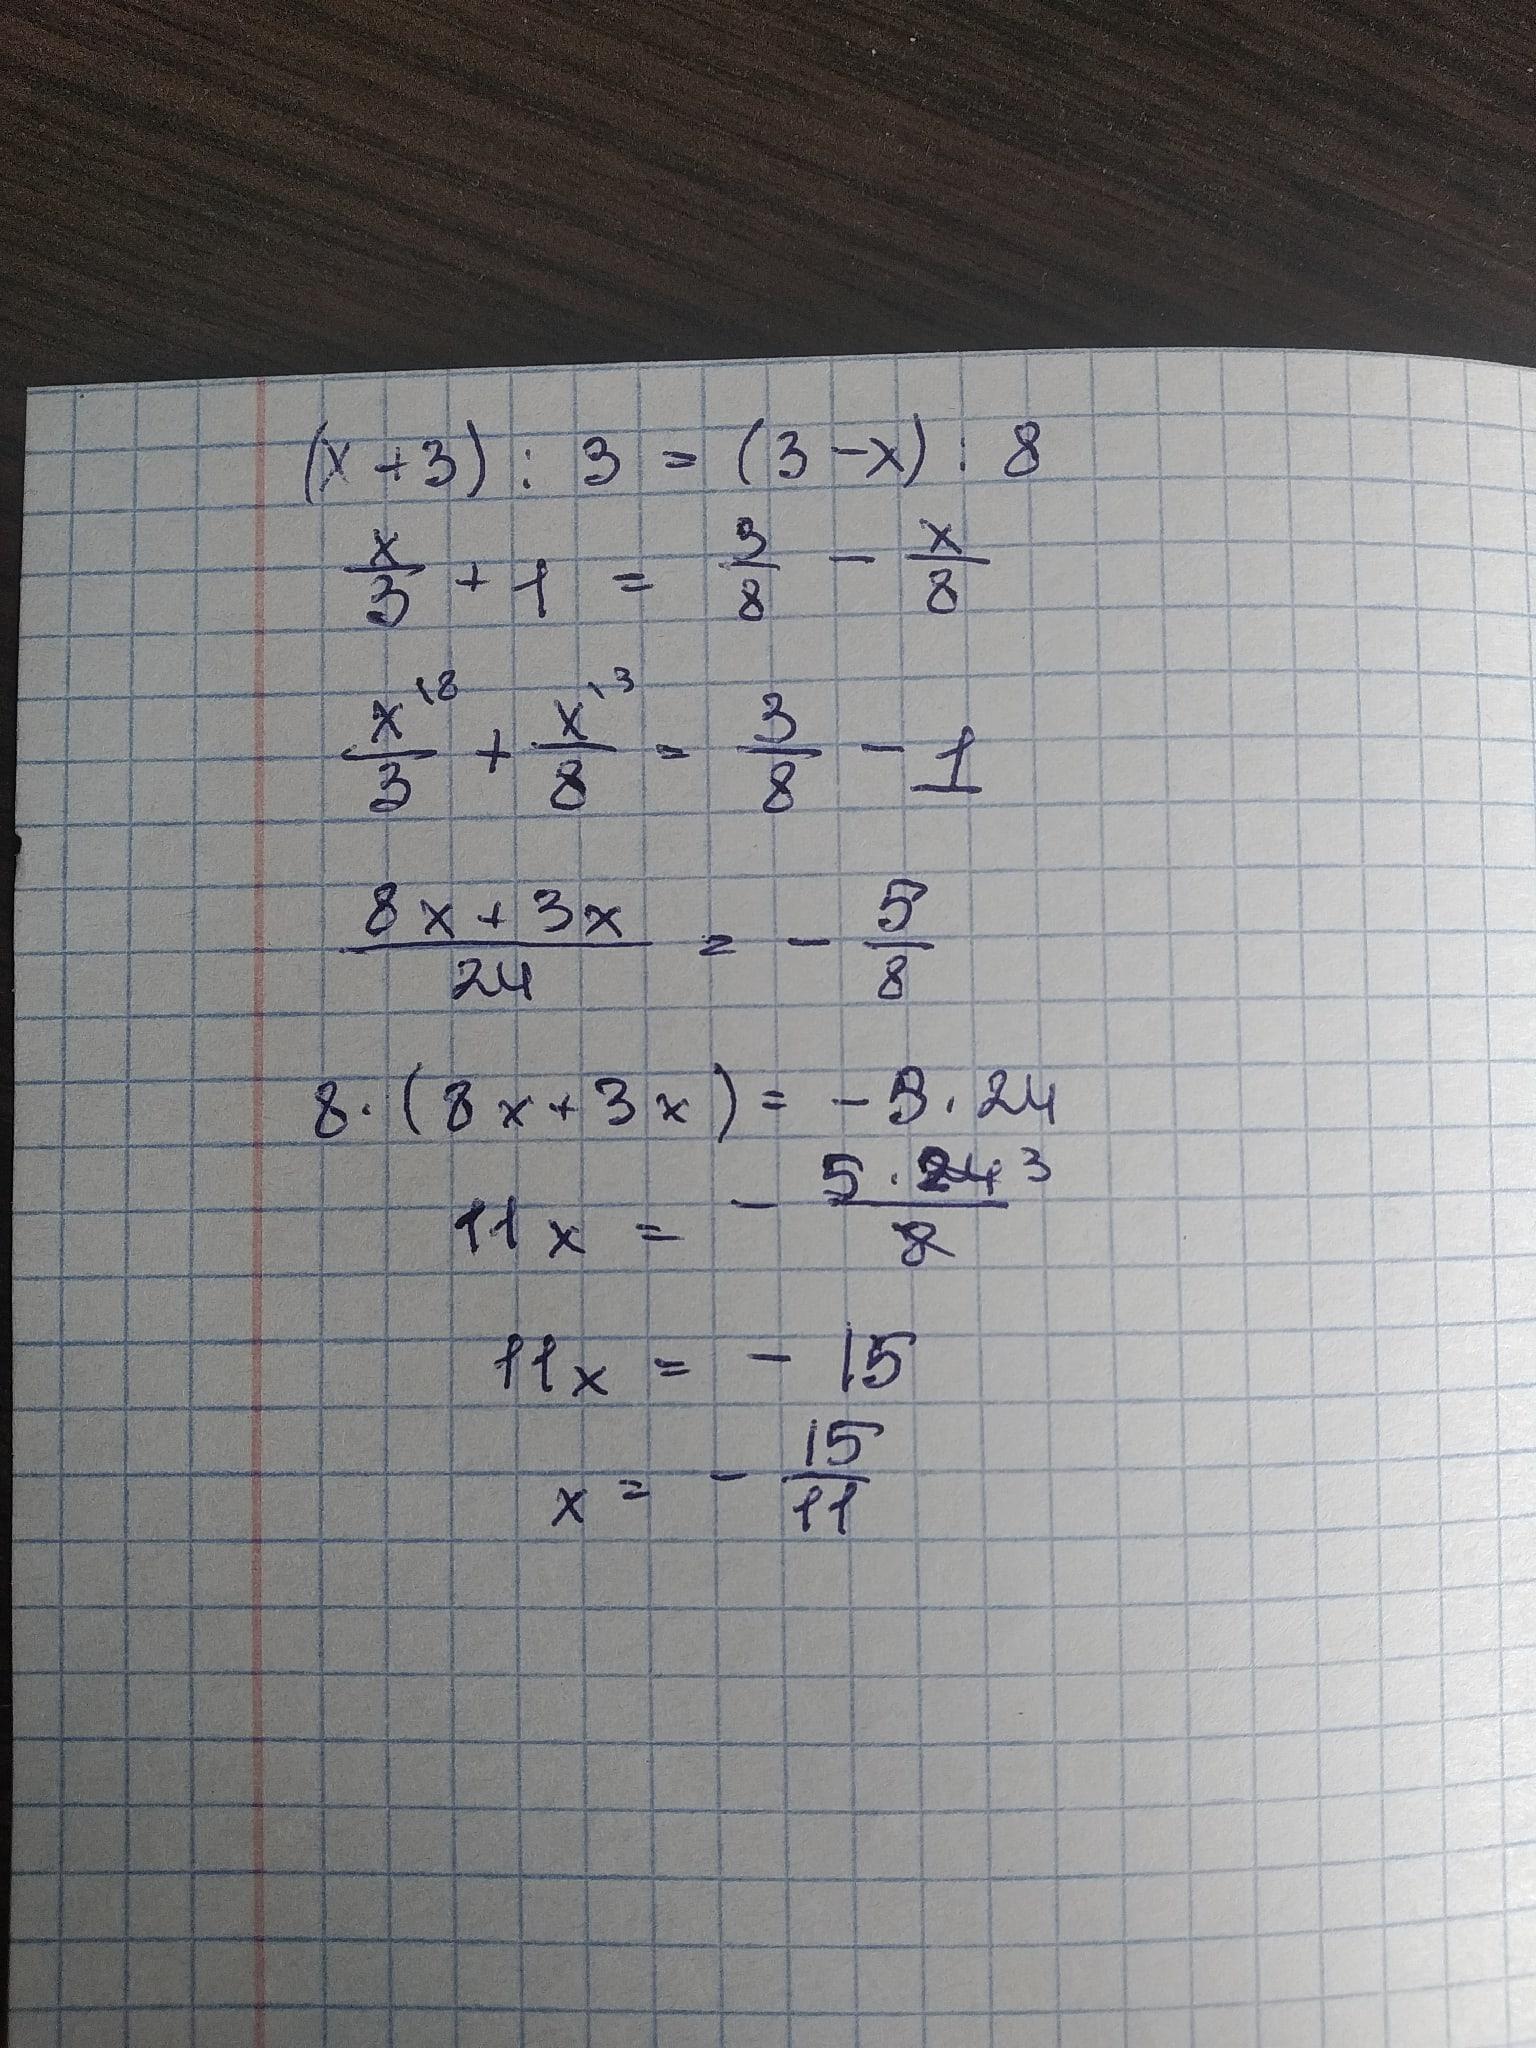 (x + 3) : 3 = (3 - x) : 8
x/3 + 1 = 3/8 - x/8
x\8/3 + x\3/8 = 3/8 - 1
(8x + 3x)/24 = - 5/8
8 · (8x + 3x) = - 5 · 24
11x = - (5 · 24 3)/8
11x = - 15
x = - 15/11